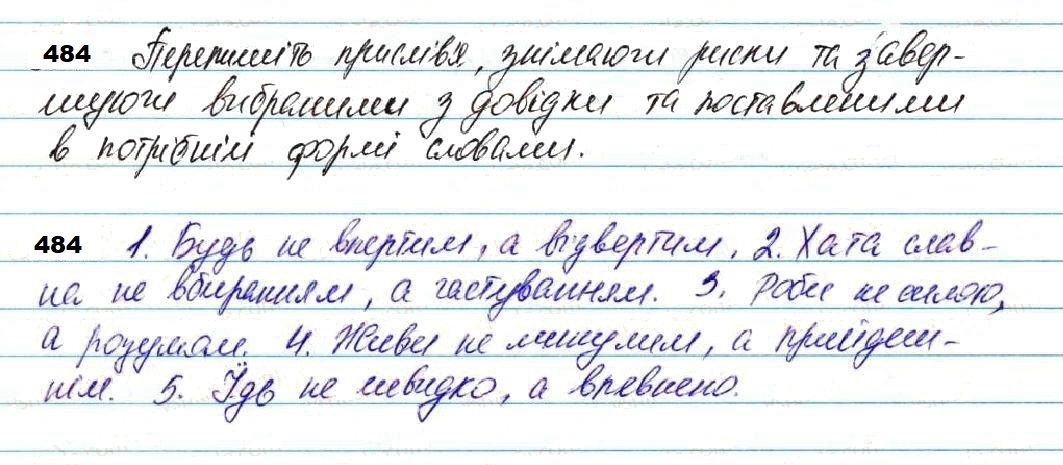 484 Перепишіть прислів'я, знімаючи риски та завер-
шуючи вибраними з довідки та поставленими
в потрібній формі словами.
484 1. Будь не впертим, а відвертим. 2. Хата слав-
на не вбиранням, а гостуванням. 3. Роби не силою,
а розумом. 4. Живи не минулим, а прийдеш-
нім. 5. Їдь не швидко, а впевнено.